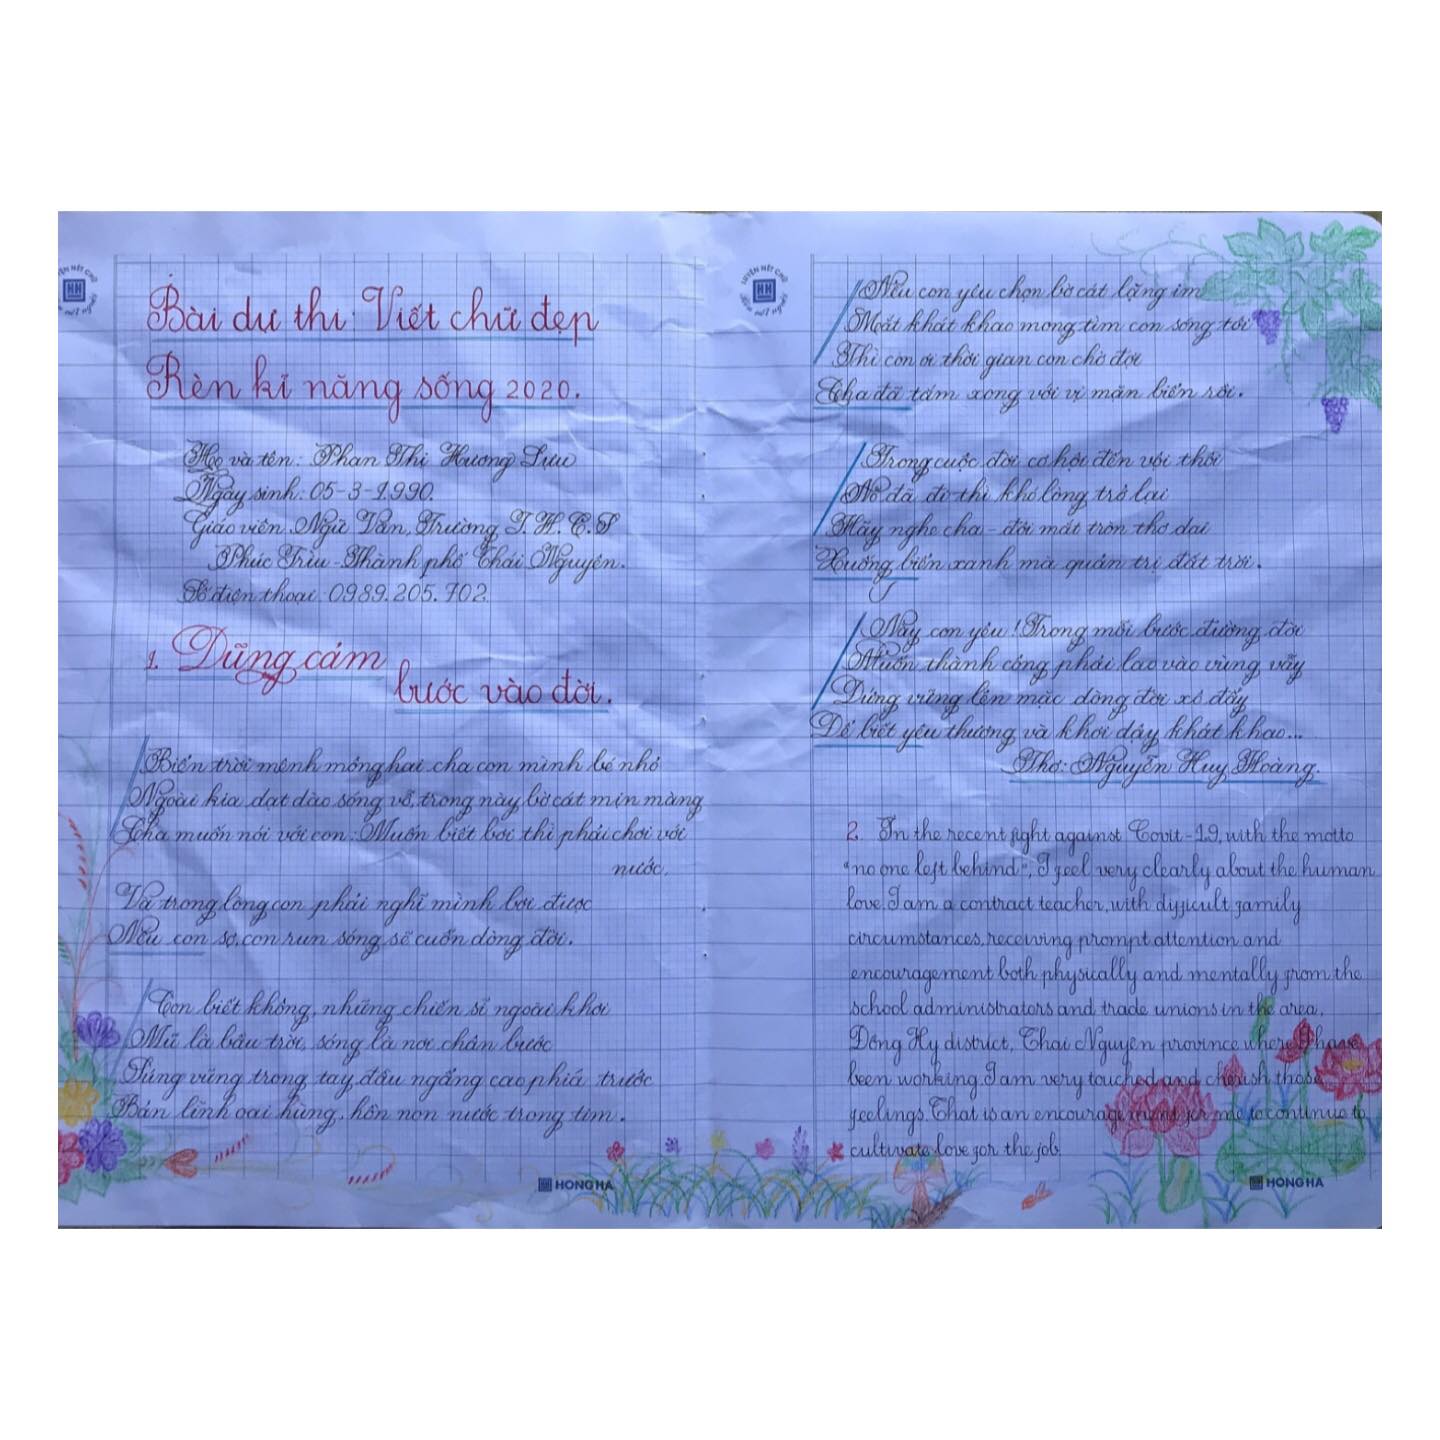 LUYỆN NÉT CHỮ
RÈN NẾT NGƯỜI
HH
Bài dự thi: Viết chữ đẹp
Rèn kĩ năng sống 2020.
Họ và tên: Phan Thị Hương Lựu
Ngày sinh: 05-3-1990.
Giáo viên Ngữ Văn, Trường T.H.C.S
Phúc Trìu - Thành phố Thái Nguyên.
Số điện thoại: 0989.205.702
1. Dũng cảm
bước vào đời.
Biển trời mênh mông hai cha con mình bé nhỏ
Ngoài kia dạt dào sóng vỗ, trong này bờ cát mịn màng
Cha muốn nói với con: Muốn biết bơi thì phải chơi với
nước.
Và trong lòng con phải nghĩ mình bơi được
Nếu con sợ, con run sóng sẽ cuốn dòng đời.
Con biết không, những chiến sĩ ngoài khơi
Mũ là bầu trời, sóng là nơi chân bước
Súng vững trong tay, đầu ngẩng cao phía trước
Bản lĩnh oai hùng, hồn non nước trong tim.
HONG HA
LUYỆN NÉT CHỮ
RÈN NẾT NGƯỜI
HH
Nếu con yêu chọn bờ cát lặng im
Mắt khát khao mong tìm con sóng tới
Thì con ơi thời gian còn chờ đợi
Cha đã tắm xong với vị mặn biển rồi.
Trong cuộc đời cơ hội đến vội thôi
Nó đã đi thì khó lòng trở lại
Hãy nghe cha - đôi mắt tròn thơ dại
Xuống biển xanh mà quản trị đất trời.
Này con yêu! Trong mỗi bước đường đời
Muốn thành công phải lao vào vùng vẫy
Đứng vững lên mặc dòng đời xô đẩy
Để biết yêu thương và khơi dậy khát khao...
Thơ: Nguyễn Huy Hoàng.
2. In the recent fight against Covit-19, with the motto
"no one left behind", I feel very clearly about the human
love. I am a contract teacher, with difficult family
circumstances, receiving prompt attention and
encouragement both physically and mentally from the
school administrators and trade unions in the area,
Dong Hy district, Thai Nguyen province where I have
been working. I am very touched and cherish those
feelings. That is an encouragement for me to continue to
cultivate love for the job
HONG HA